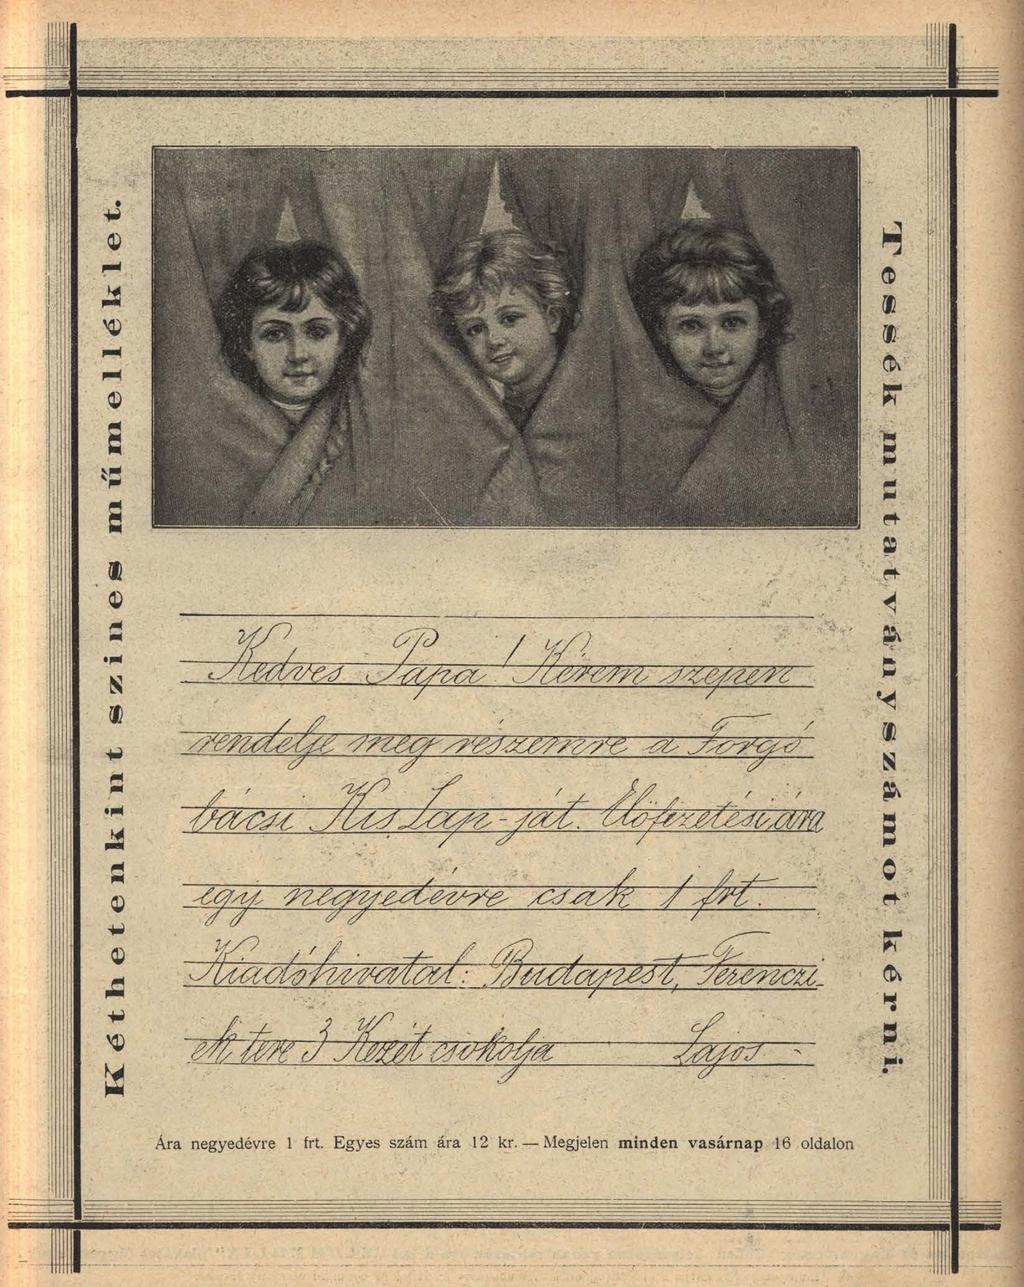 Kéthetenkint szines műmelléklet.
Tessék mutatványszámot kérni.
Kedves Papa! Kérem szépen
rendelje meg részemre a Forgó
bácsi Kis Lap-ját. Előfizetési ára
egy negyedévre csak 1 frt.
Kiadóhivatal: Budapest, Ferenczi-
ek tere 3 Kezét csókolja Lajos -
Ára negyedévre 1 frt. Egyes szám ára 12 kr. — Megjelen minden vasárnap 16 oldalon